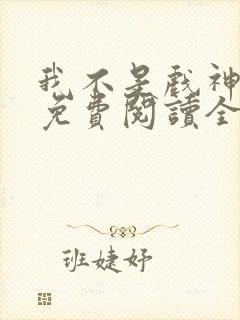 我不是戲神
免費閱讀全
班婕妤